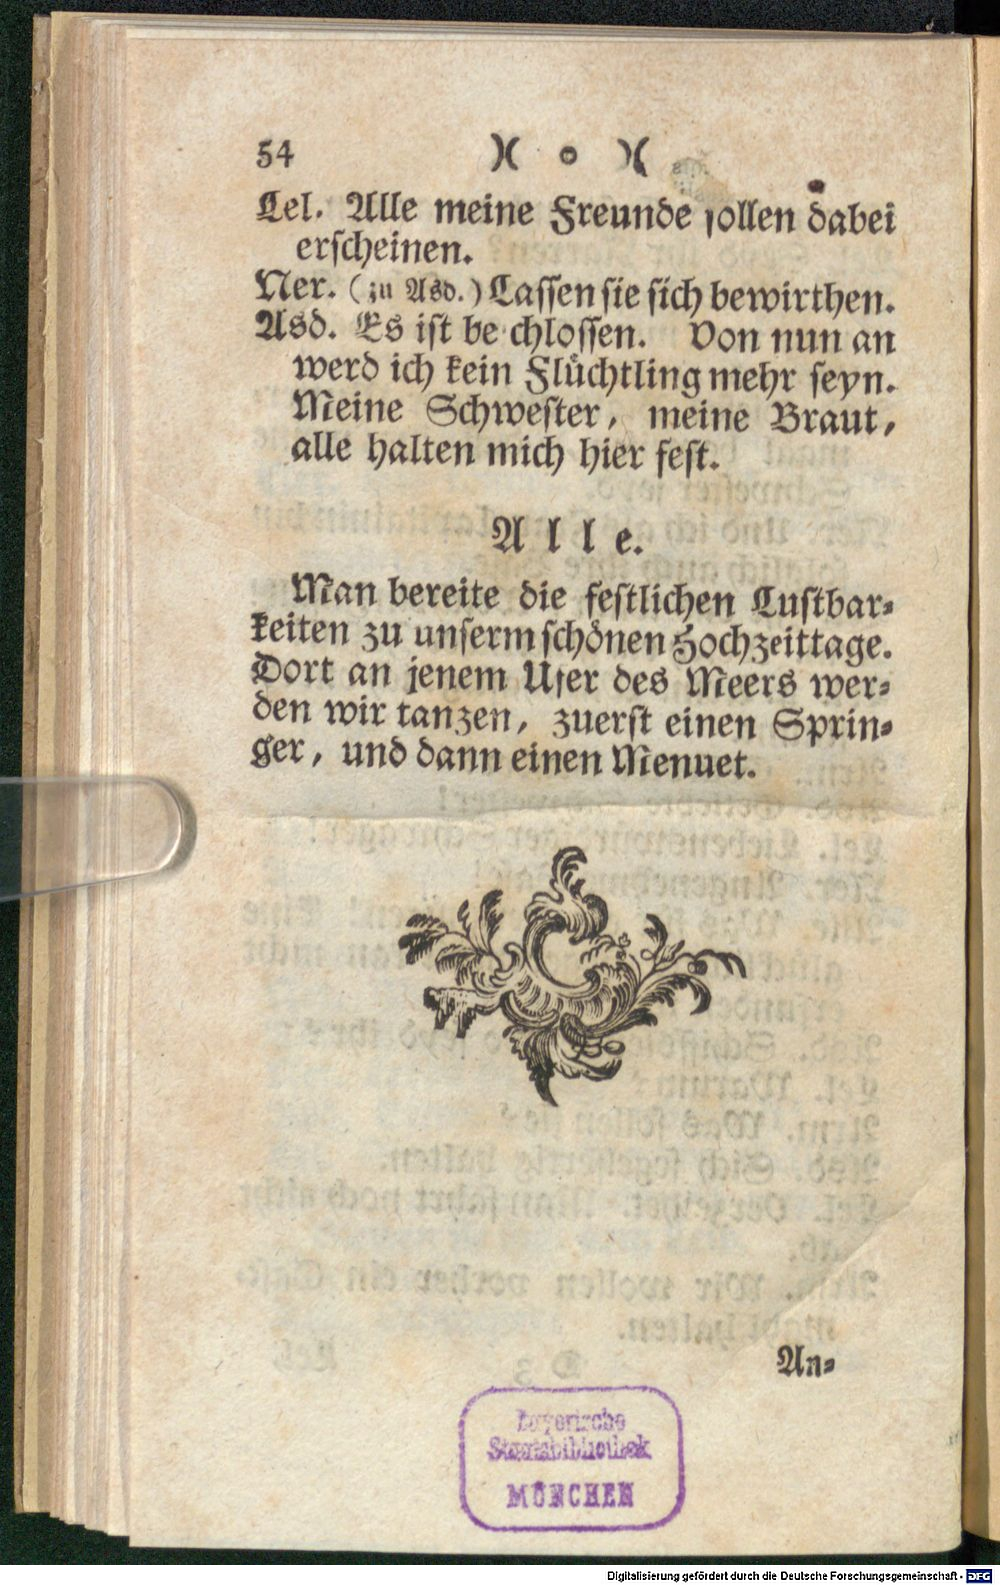 54 )( o )(
Lel. Alle meine Freunde sollen dabei
erscheinen.
Ner. (zu Asd.) Lassen sie sich bewirthen.
Asd. Es ist be chlossen. Von nun an
werd ich kein Flüchtling mehr seyn.
Meine Schwester, meine Braut,
alle halten mich hier fest.
Alle.
Man bereite die festlichen Lustbar-
keiten zu unserm schönen Hochzeittage.
Dort an jenem Ufer des Meers wer-
den wir tanzen, zuerst einen Sprin-
ger, und dann einen Menuet.
An-
Bayerische
Staatsbibliothek
MÜNCHEN
Digitalisierung gefördert durch die Deutsche Forschungsgemeinschaft - DFG